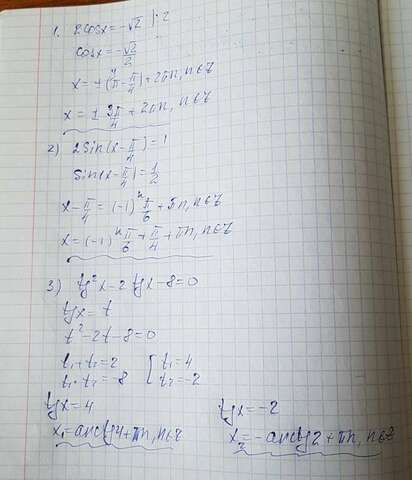 1. 2cosx = -√2 |:2
cosx = -√2/2
x = ±(π - π/4) + 2πn, n∈Z
x = ± 3π/4 + 2πn, n∈Z
2) 2sin(x - π/4) = 1
sin(x - π/4) = 1/2
x - π/4 = (-1)ⁿ π/6 + πn, n∈Z
x = (-1)ⁿ π/6 + π/4 + πn, n∈Z
3) tg²x - 2 tgx - 8 = 0
tgx = t
t² - 2t - 8 = 0
t₁ + t₂ = 2 [ t₁ = 4
t₁ · t₂ = -8 t₂ = -2
tgx = 4 tgx = -2
x₁ = arctg4 + πn, n∈Z x₂ = -arctg2 + πn, n∈Z